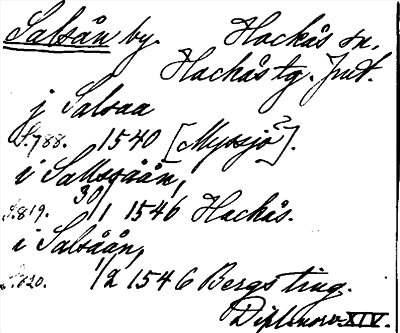 Salsån by. Hackås sn,
Hackås tg. Jmt.
j Salsaa
S.788. 1540 [Myssjö?].
i Sallsåån,
S.819. 30/1 1546 Hackås.
i Salsåån,
S.820. 1/2 1546 Bergs ting.
Diplnorv. XIV.